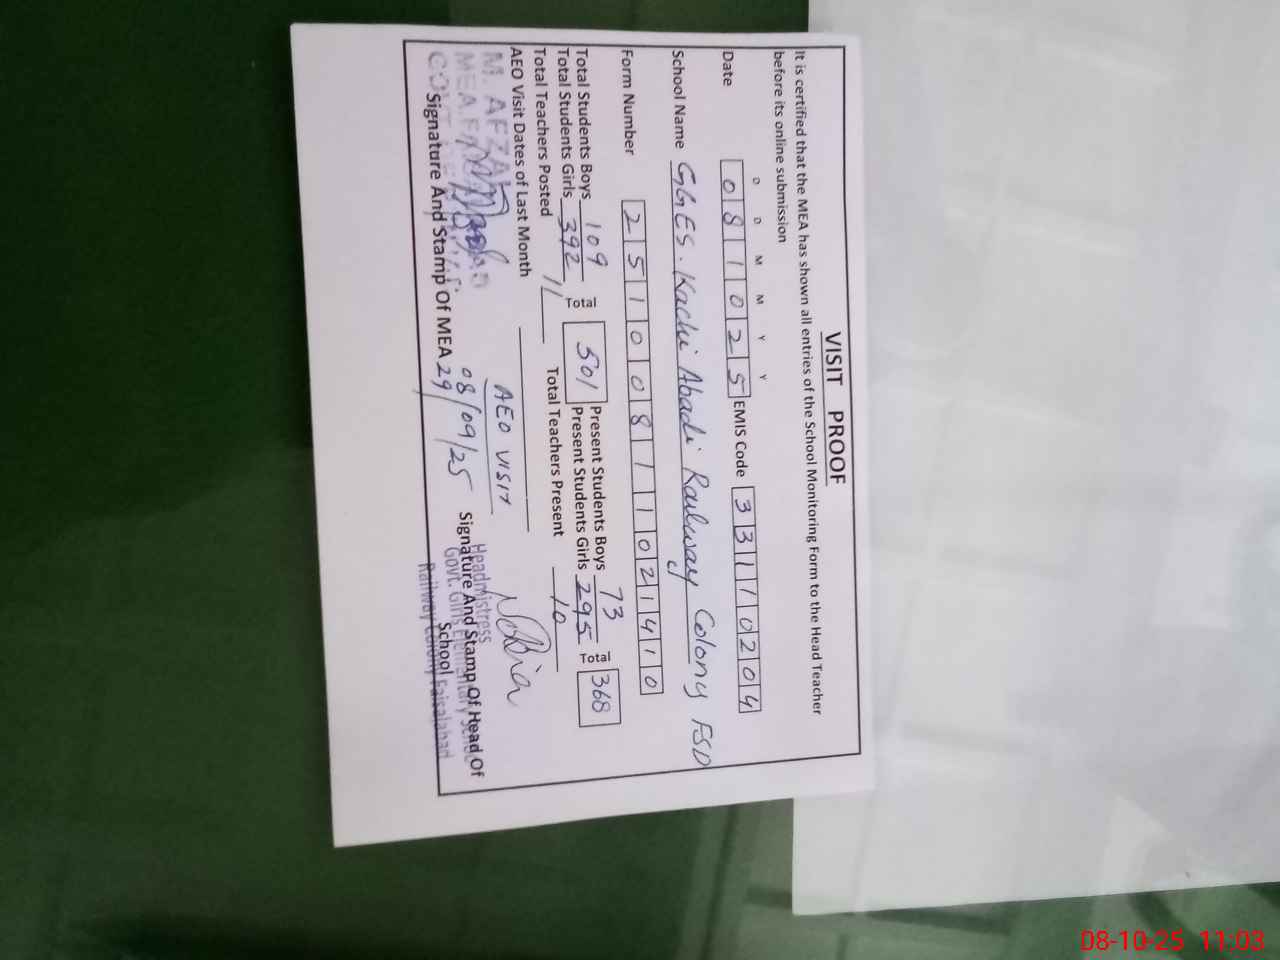 VISIT PROOF
It is certified that the MEA has shown all entries of the School Monitoring Form to the Head Teacher
before its online submission
D D M M Y Y
Date 0 8 1 0 2 5 EMIS Code 3 3 1 1 0 2 0 4
School Name GGES. Kachi Abadi Railway Colony FSD
Form Number 2 5 1 0 0 8 1 1 0 2 1 4 1 0
Total Students Boys 109 Total 501 Present Students Boys 73 Total 368
Total Students Girls 392 Present Students Girls 295
Total Teachers Posted 11 Total Teachers Present 10
AEO Visit Dates of Last Month
AEO VISIT
08/09/25
29/
M. AFZAL
MEA
Signature And Stamp Of MEA
Headmistress
Govt. Girls Elementary School
Railway Colony Faisalabad
Signature And Stamp Of Head Of
School
08-10-25 11:03